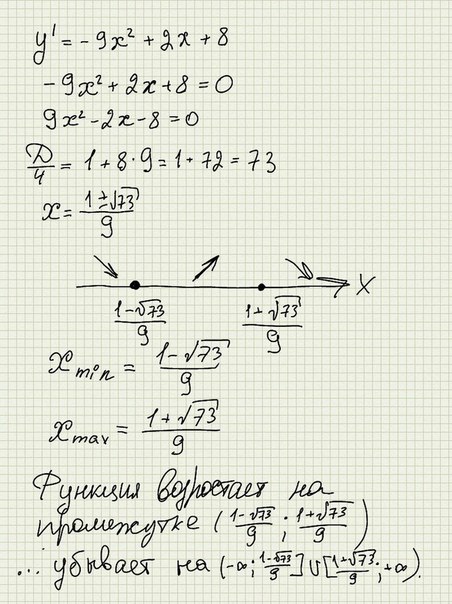 y' = -9x² + 2x + 8
-9x² + 2x + 8 = 0
9x² - 2x - 8 = 0
D/4 = 1 + 8·9 = 1 + 72 = 73
x = (1±√73)/9
X
(1-√73)/9 (1+√73)/9
x min = (1-√73)/9
x max = (1+√73)/9
Функция возростает на
промежутке ((1-√73)/9 ; (1+√73)/9)
... убывает на (-∞; (1-√73)/9] U [(1+√73)/9; +∞).